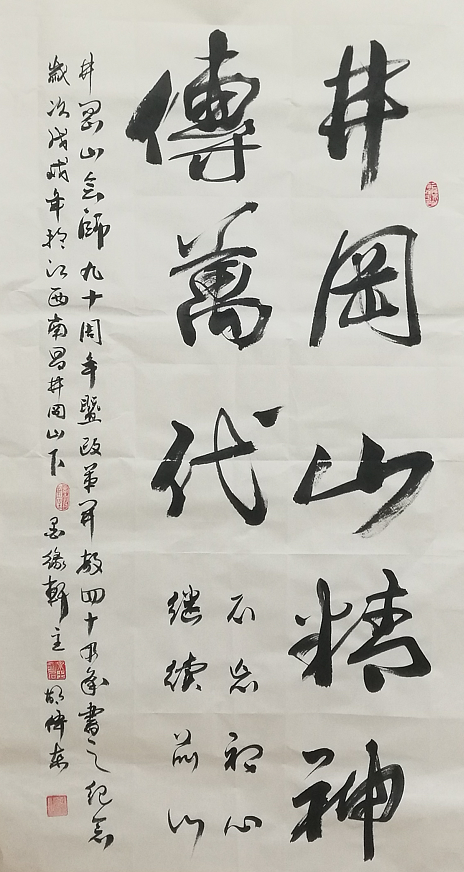 井岡山精神
傳萬代
不忘初心
继续前行
井岡山会師九十周年暨改革開放四十周年書之纪念
歲次戊戌年於江西南昌井岡山下
墨缘軒主
胡伟东